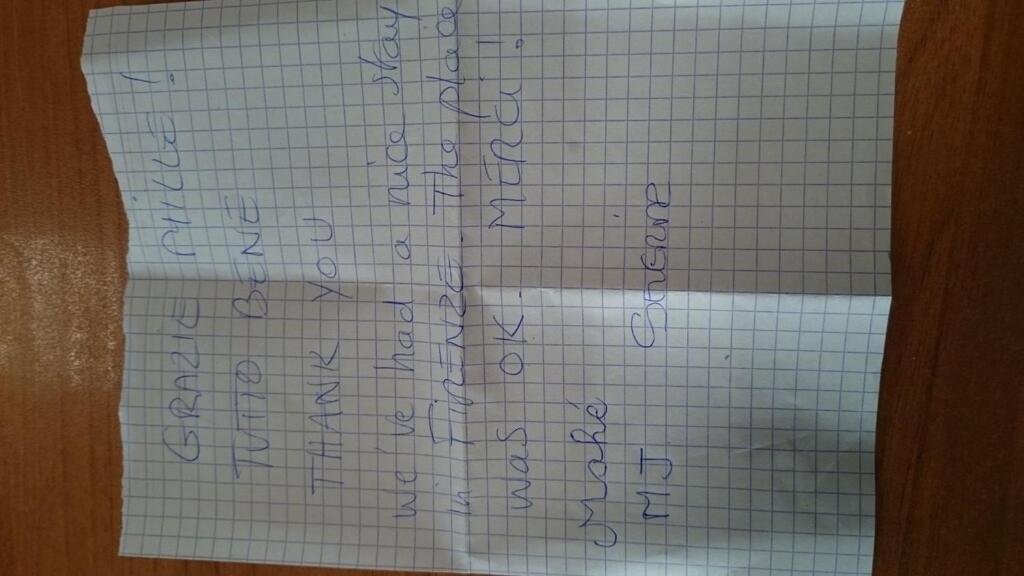 GRAZIE MILLE !
TUTTO BENE
THANK YOU
We've had a nice stay
in FIRENZE. The place
was OK. MERCI !
Mahé
MJ